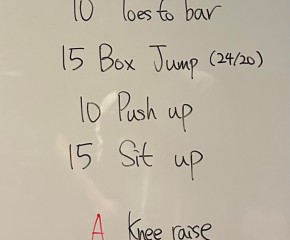 10 Toes to bar
15 Box Jump (24/20)
10 Push up
15 Sit up
A Knee raise